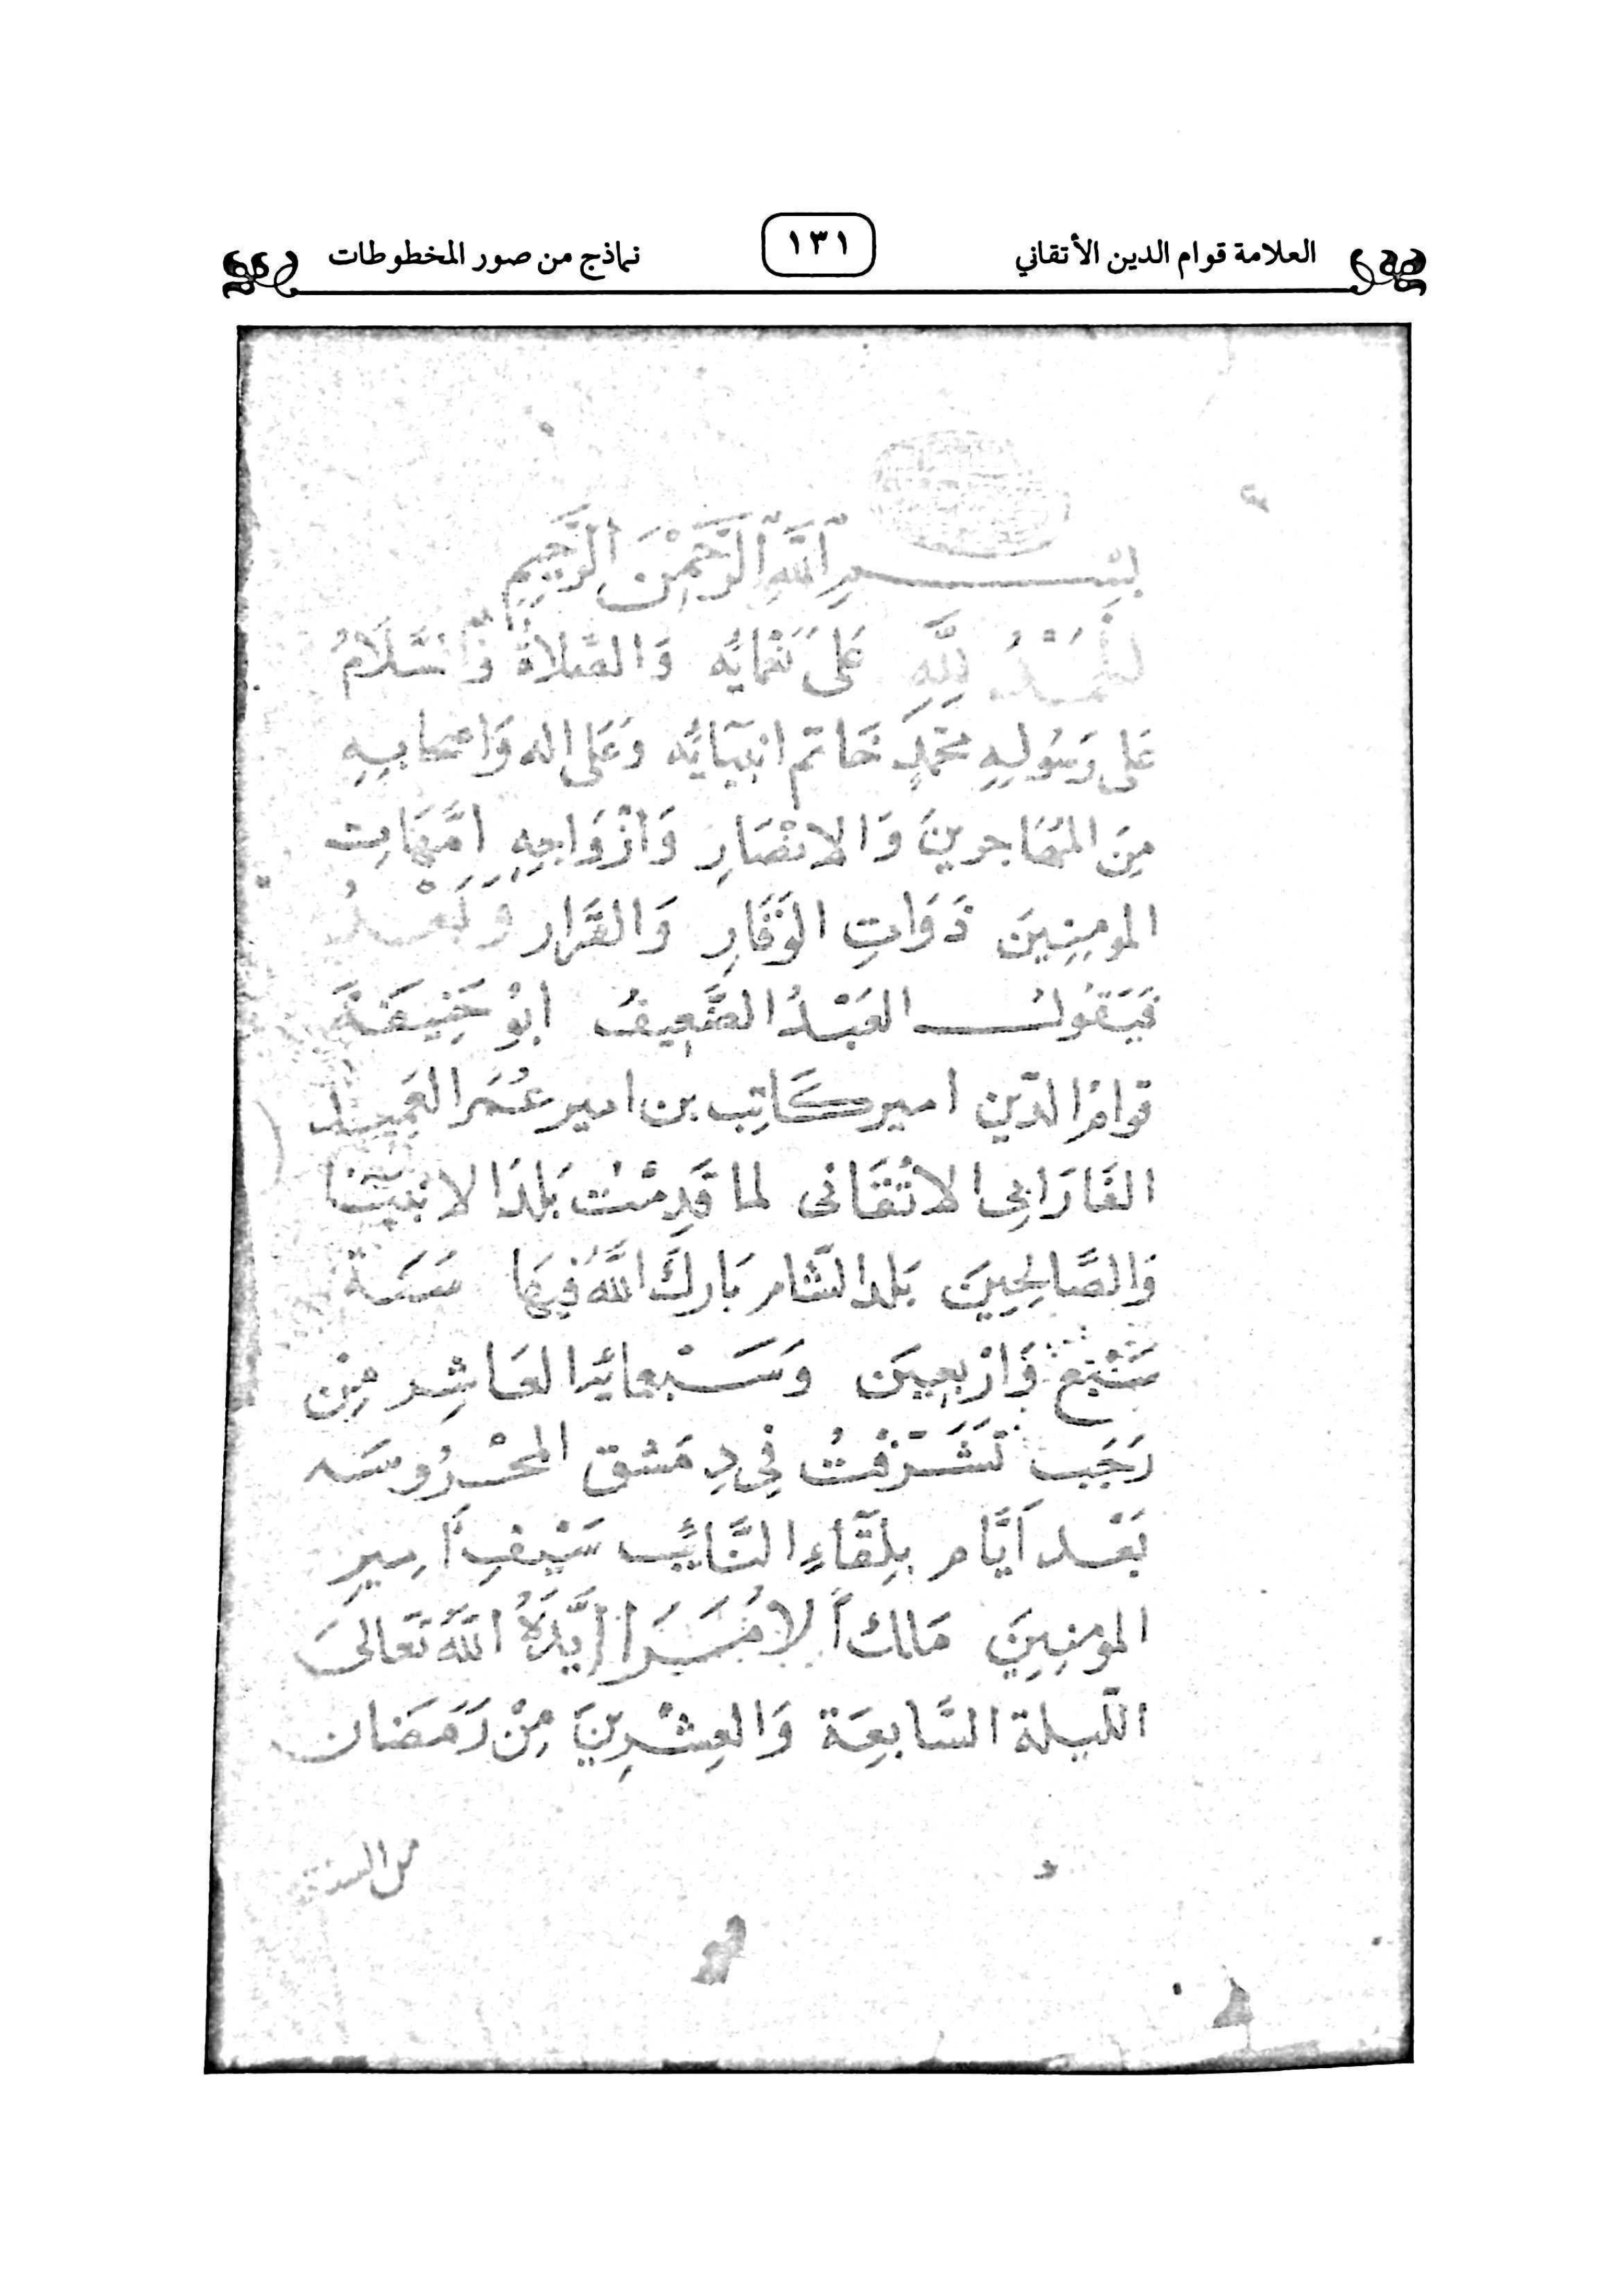 العلامة قوام الدين الأتقاني
١٣١
نماذج من صور المخطوطات
بِسْمِ اللَّهِ الرَّحْمَنِ الرَّحِيمِ
الحَمْدُ لِلَّهِ عَلَى نَعْمَايُه وَالصَّلاةُ وَالسَّلَامُ
عَلى رَسُولِهِ مُحَمَّدٍ خَاتم انبيَايُه وَعَلى اله وَاصحابِهِ
مِنَ المُهَاجرينَ وَالانْصَارِ وَأزْوَاجِهِ امَّهَاتِ
المومِنِينَ ذَوَاتِ الوَقَارِ وَالقَرَار وَبَعْدُ
فَيَقُولُ العَبْدُ الضَّعِيفُ ابُو حَنِيفَةَ
قوامُ الدّين امير كَاتِب بن امير عُمَر العَمِيد
الفَارَابِي الاتْقَانى لما قَدِمْتُ بَلَدَ الانبيَا
وَالصَّالِحِينَ بَلد الشّام بَارَكَ اللَّهُ فِيهَا سَنَة
سَبْعٍ وَارْبعِينَ وَسَبْعمائة العَاشِر مِنْ
رَجَب تَشَرّفتُ فِي دِمَشق المحْرُوسَه
بَعْد اَيَّام بِلِقَآءِ النَّايِب سَيْفِ اَمِيرِ
المومِنِينَ مَلك اْلامُرَا اَيَّدَهُ اللَّهُ تَعَالىَ
اللّيلة السَّابعِة وَالعِشْرِينَ مِنْ رَمَضَان
من السنة